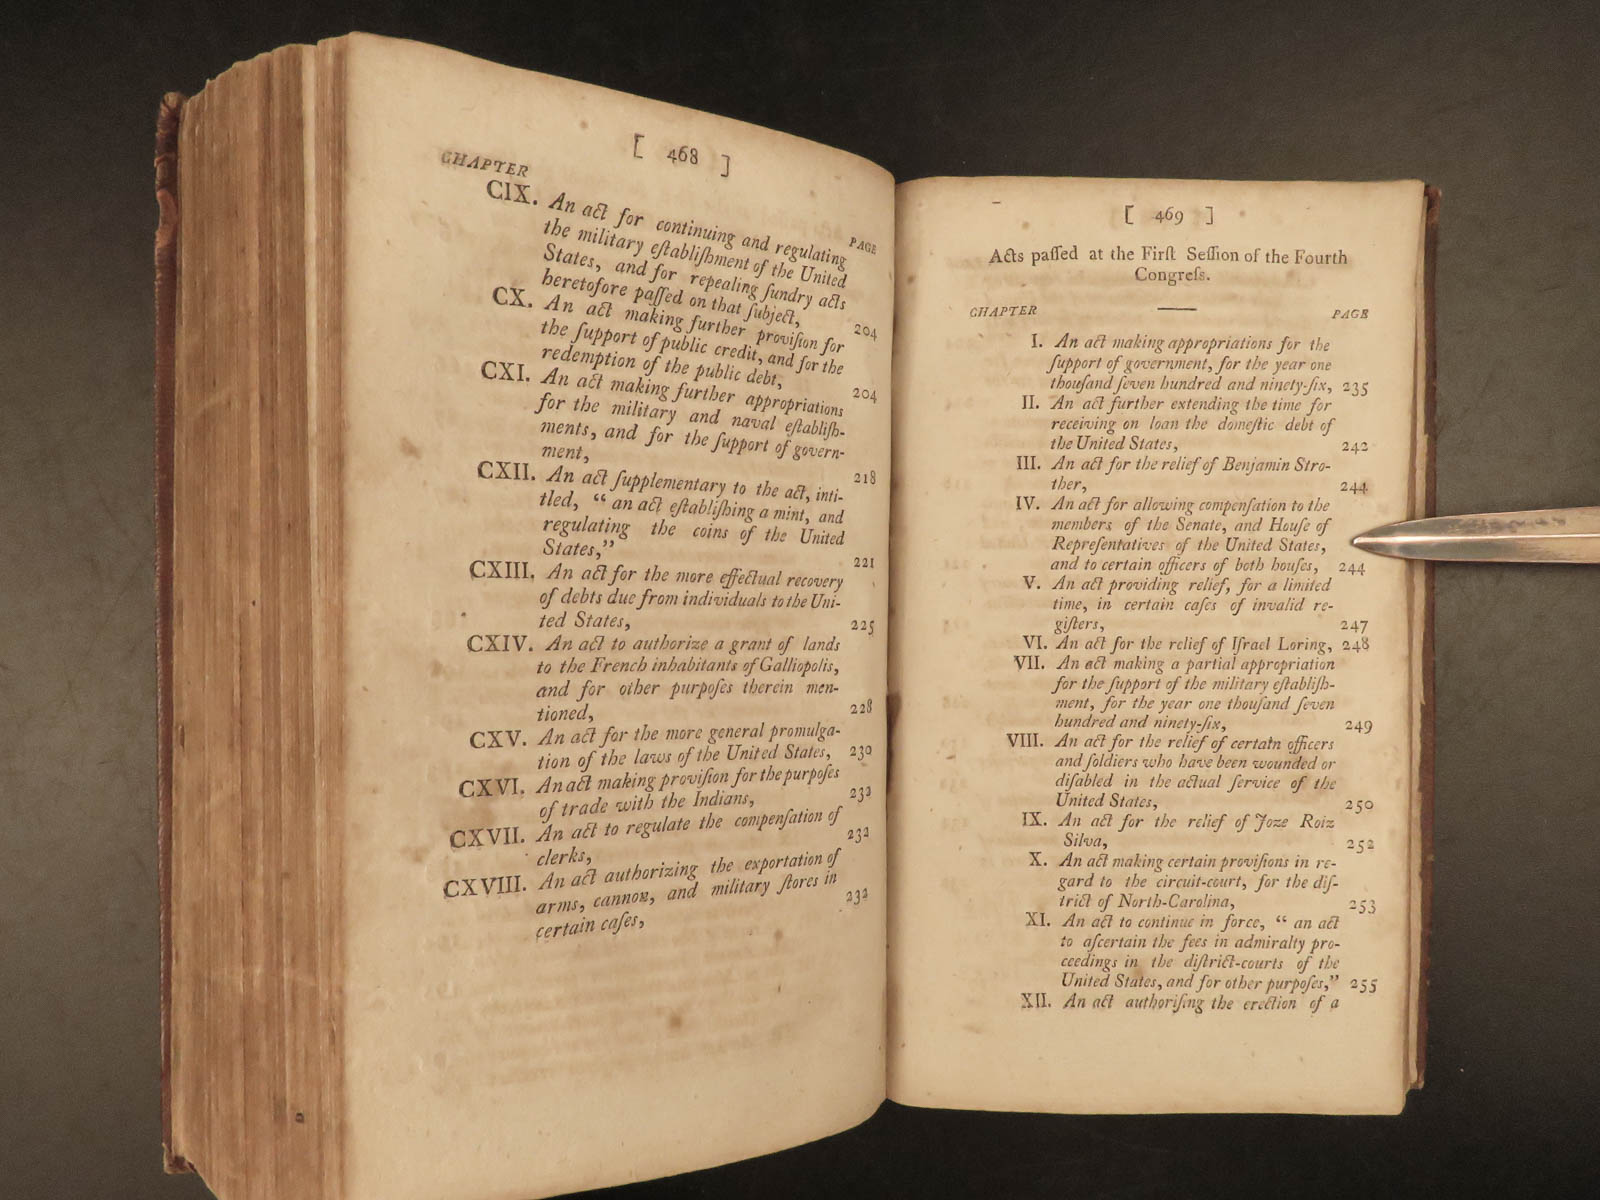 [ 468 ]
CHAPTER
PAGE
CIX. An act for continuing and regulating
the military eſtabliſhment of the United
States, and for repealing ſundry acts
heretofore paſſed on that ſubject, 204
CX. An act making further proviſion for
the ſupport of public credit, and for the
redemption of the public debt, 204
CXI. An act making further appropriations
for the military and naval eſtabliſh-
ments, and for the ſupport of govern-
ment, 218
CXII. An act ſupplementary to the act, inti-
tled, “ an act eſtabliſhing a mint, and
regulating the coins of the United
States,” 221
CXIII. An act for the more effectual recovery
of debts due from individuals to the Uni-
ted States, 225
CXIV. An act to authorize a grant of lands
to the French inhabitants of Galliopolis,
and for other purpoſes therein men-
tioned, 228
CXV. An act for the more general promulga-
tion of the laws of the United States, 230
CXVI. An act making proviſion for the purpoſes
of trade with the Indians, 232
CXVII. An act to regulate the compenſation of
clerks, 232
CXVIII. An act authorizing the exportation of
arms, cannon, and military ſtores in
certain caſes, 232
[ 469 ]
Acts paſſed at the Firſt Seſſion of the Fourth
Congreſs.
CHAPTER PAGE
I. An act making appropriations for the
ſupport of government, for the year one
thouſand ſeven hundred and ninety-ſix, 235
II. An act further extending the time for
receiving on loan the domeſtic debt of
the United States, 242
III. An act for the relief of Benjamin Stro-
ther, 244
IV. An act for allowing compenſation to the
members of the Senate, and Houſe of
Repreſentatives of the United States,
and to certain officers of both houſes, 244
V. An act providing relief, for a limited
time, in certain caſes of invalid re-
giſters, 247
VI. An act for the relief of Iſrael Loring, 248
VII. An act making a partial appropriation
for the ſupport of the military eſtabliſh-
ment, for the year one thouſand ſeven
hundred and ninety-ſix, 249
VIII. An act for the relief of certain officers
and ſoldiers who have been wounded or
diſabled in the actual ſervice of the
United States, 250
IX. An act for the relief of Joze Roiz
Silva, 252
X. An act making certain proviſions in re-
gard to the circuit-court, for the diſ-
trict of North-Carolina, 253
XI. An act to continue in force, “ an act
to aſcertain the fees in admiralty pro-
ceedings in the diſtrict-courts of the
United States, and for other purpoſes,” 255
XII. An act authoriſing the erection of a